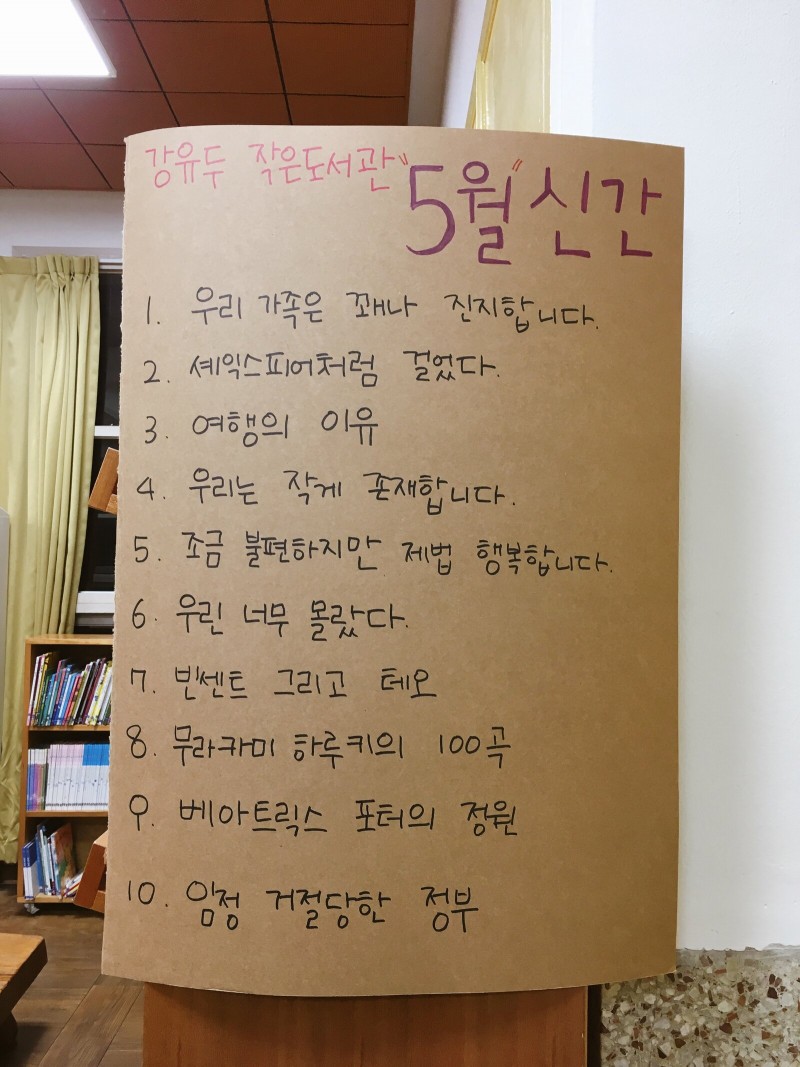 강유두 작은도서관 "5월" 신간
1. 우리 가족은 꽤나 진지합니다.
2. 셰익스피어처럼 걸었다.
3. 여행의 이유
4. 우리는 작게 존재합니다.
5. 조금 불편하지만 제법 행복합니다.
6. 우린 너무 몰랐다.
7. 빈센트 그리고 테오
8. 무라카미 하루키의 100곡
9. 베아트릭스 포터의 정원
10. 임정 거절당한 정부